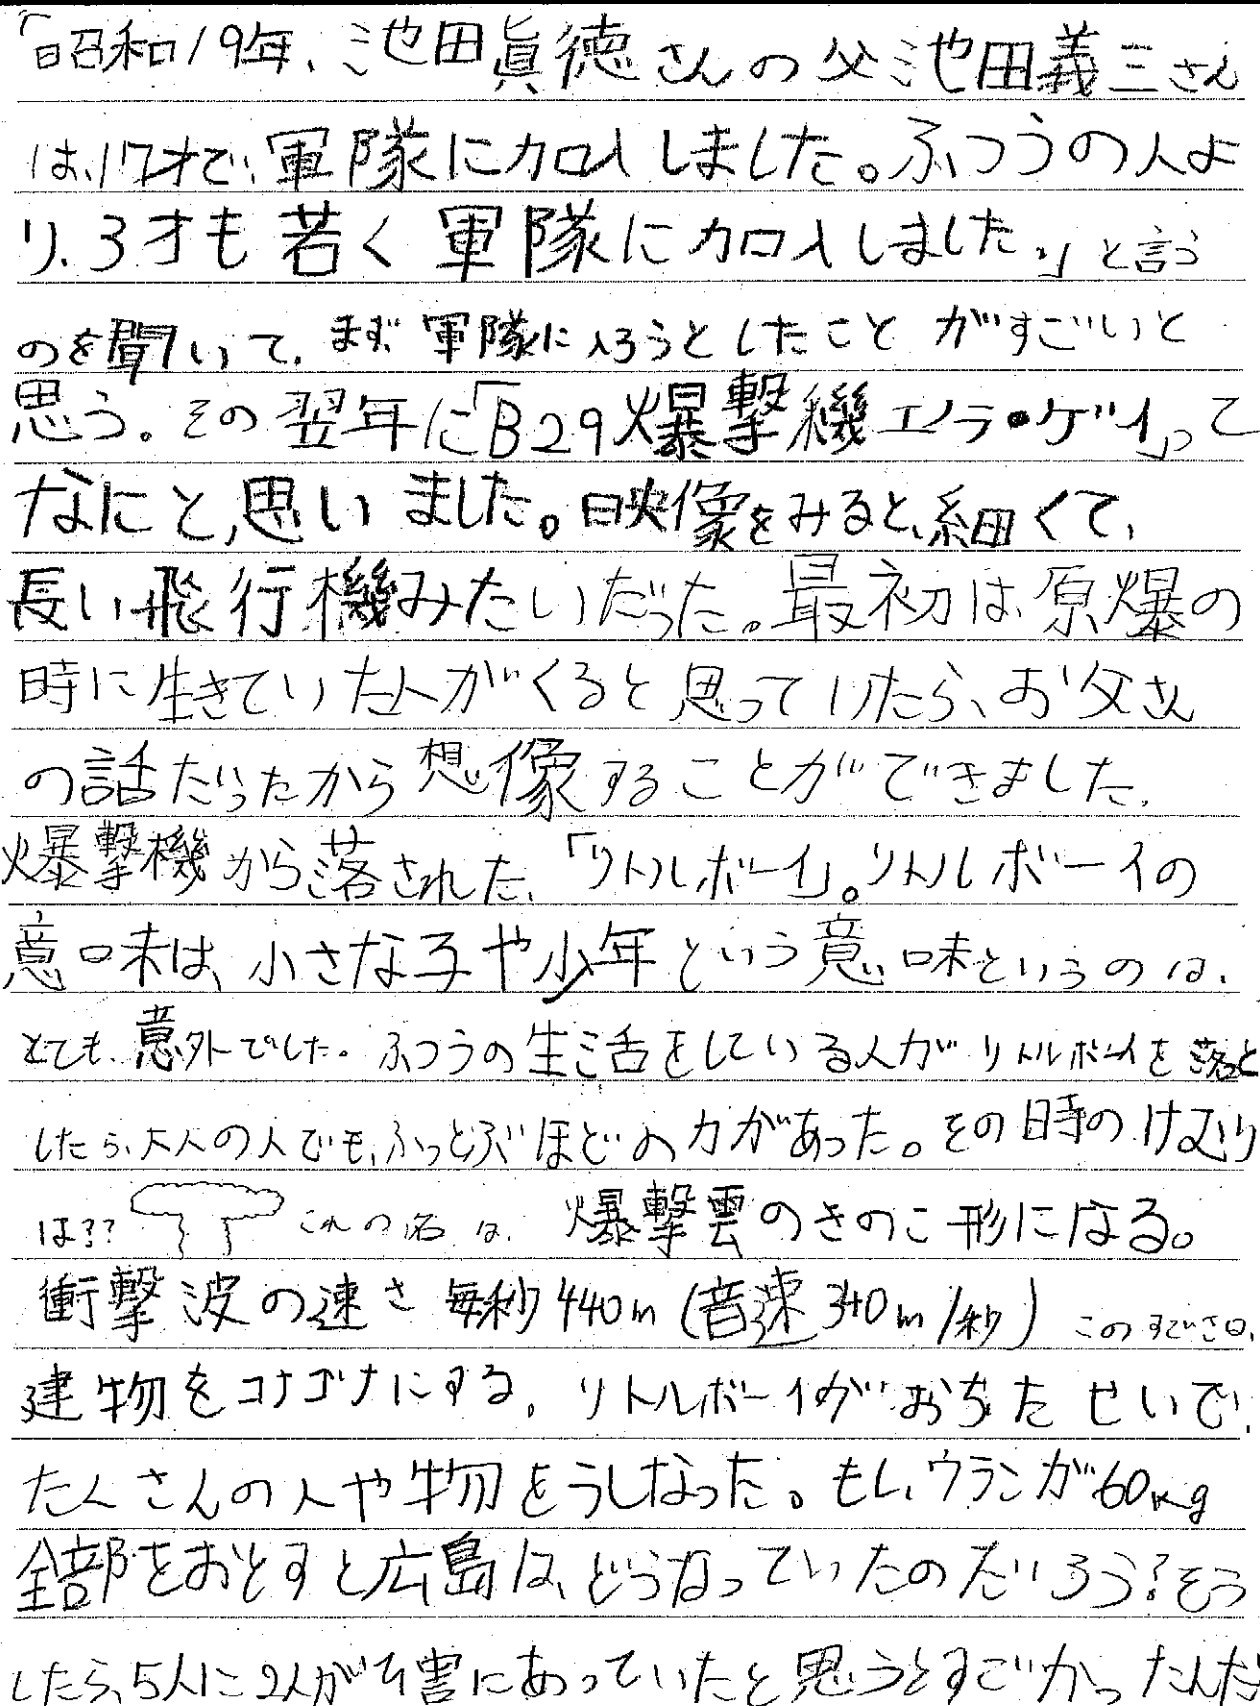 「昭和19年、池田眞徳さんの父池田義三さん
は、17才で、軍隊に加入しました。ふつうの人よ
り、3才も若く軍隊に加入しました。」と言う
のを聞いて、まず、軍隊に入ろうとしたことがすごいと
思う。その翌年に「B29爆撃機エノラ・ゲイ」って
なにと、思いました。映像をみると、細くて、
長い飛行機みたいだった。最初は、原爆の
時に生きていた人がくると思っていたら、お父さん
の話だったから想像することができました。
爆撃機から落された、「リトルボーイ」。リトルボーイの
意味は、小さな子や少年という意味というのは、
とても、意外でした。ふつうの生活をしている人がリトルボーイを落と
したら、大人の人でも、ふっとぶほどの力があった。その時のけむり
は?? これの名は、爆撃雲のきのこ形になる。
衝撃波の速さ毎秒440m(音速340m/秒)このすごさは、
建物をコナゴナにする。リトルボーイがおちたせいで、
たくさんの人や物をうしなった。もし、ウランが60kg
全部をおとすと広島は、どうなっていたのだいろう?そう
したら、5人に2人が害にあっていたと思うとすごかったんだ